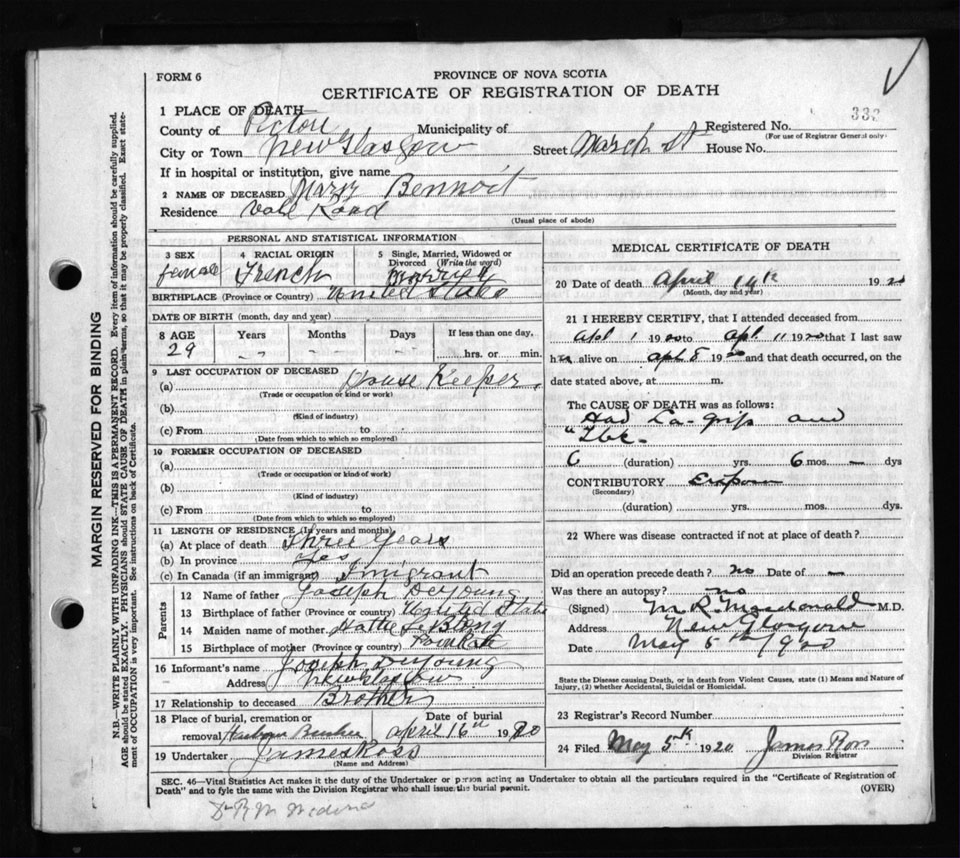 FORM 6
PROVINCE OF NOVA SCOTIA
CERTIFICATE OF REGISTRATION OF DEATH
1 PLACE OF DEATH
County of Pictou Municipality of Registered No. 333
(For use of Registrar General only)
City or Town New Glasgow Street March St House No.
If in hospital or institution, give name
2 NAME OF DECEASED Mary Bennoit
Residence Vale Road
(Usual place of abode)
PERSONAL AND STATISTICAL INFORMATION
3 SEX female
4 RACIAL ORIGIN French
5 Single, Married, Widowed or Divorced (Write the word) Married
BIRTHPLACE (Province or Country) United States
DATE OF BIRTH (month, day and year)
8 AGE Years Months Days If less than one day,
29 -- -- -- hrs. or min.
9 LAST OCCUPATION OF DECEASED
(a) House Keeper
(Trade or occupation or kind or work)
(b)
(Kind of industry)
(c) From to
(Date from which to which so employed)
10 FORMER OCCUPATION OF DECEASED
(a)
(Trade or occupation or kind of work)
(b)
(Kind of industry)
(c) From to
(Date from which to which so employed)
11 LENGTH OF RESIDENCE (In years and months)
(a) At place of death Three years
(b) In province Yes
(c) In Canada (if an immigrant) Imigrant
Parents
12 Name of father Joseph DeYoung
13 Birthplace of father (Province or country) United State
14 Maiden name of mother Hattie LeBlang
15 Birthplace of mother (Province or country)
16 Informant's name Joseph DeYoung
Address New Glasgow
17 Relationship to deceased Brother
18 Place of burial, cremation or removal Date of burial April 16th 1920
19 Undertaker James Ross
(Name and Address)
MEDICAL CERTIFICATE OF DEATH
20 Date of death April 14th 1920
(Month, day and year)
21 I HEREBY CERTIFY, that I attended deceased from
Apl 1 1920 to Apl. 11 1920 that I last saw
her alive on Apl 8 1920 and that death occurred, on the
date stated above, at m.
The CAUSE OF DEATH was as follows:
Had La-grip and
"Tbc-
(duration) yrs. 6 mos. — dys
CONTRIBUTORY
(Secondary)
(duration) yrs. mos. dys.
22 Where was disease contracted if not at place of death?
Did an operation precede death? no Date of —
Was there an autopsy? no
(Signed) M. R. Macdonald M.D.
Address New Glasgow
May 5th 1920
State the Disease causing Death, or in death from Violent Causes, state (1) Means and Nature of
Injury, (2) whether Accidental, Suicidal or Homicidal.
23 Registrar's Record Number
24 Filed May 5th 1920 James Ross
Division Registrar
SEC. 46—Vital Statistics Act makes it the duty of the Undertaker or person acting as Undertaker to obtain all the particulars required in the "Certificate of Registration of
Death" and to fyle the same with the Division Registrar who shall issue the burial permit. (OVER)
MARGIN RESERVED FOR BINDING
N.B.—WRITE PLAINLY WITH UNFADING INK—THIS IS A PERMANENT RECORD. Every item of information should be carefully supplied.
AGE should be stated EXACTLY. PHYSICIANS should STATE CAUSE OF DEATH in plain terms, so that it may be properly classified. Exact state-
ment of OCCUPATION is very important. See instructions on back of Certificate.